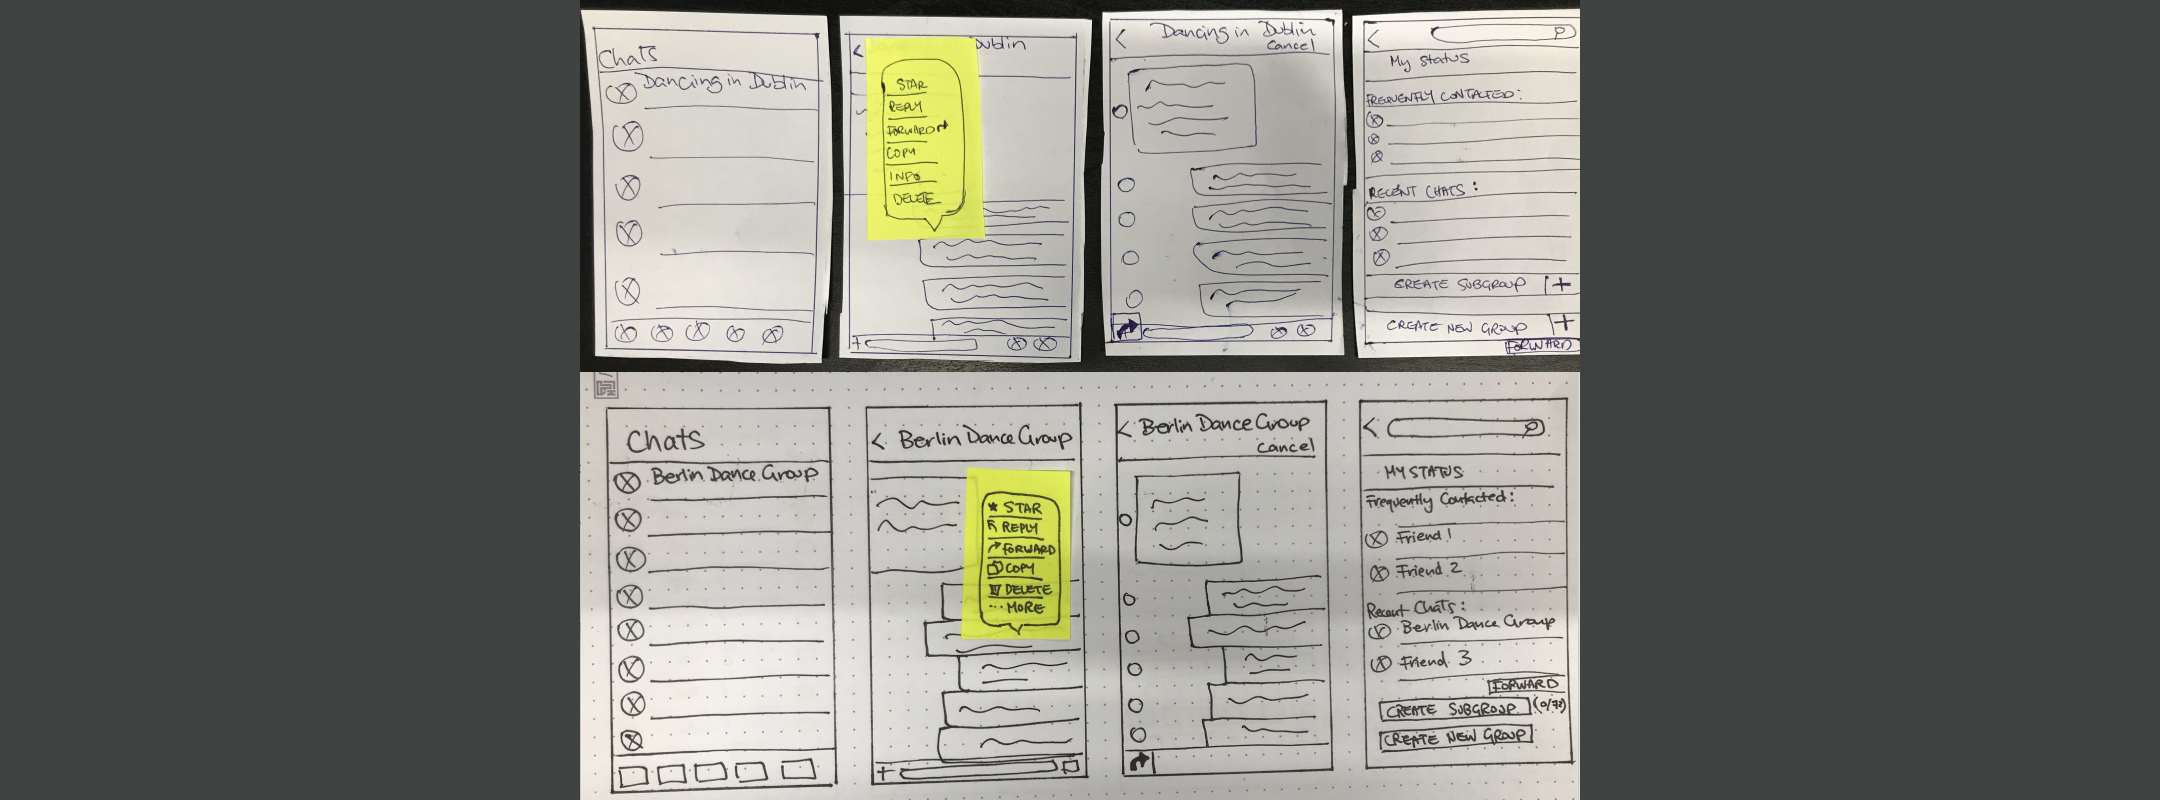 Chats
Dancing in Dublin
<
Dublin
STAR
REPLY
FORWARD
COPY
INFO
DELETE
+
<
Dancing in Dublin
Cancel
<
My status
FREQUENTLY CONTACTED:
RECENT CHATS:
CREATE SUBGROUP +
CREATE NEW GROUP +
FORWARD
Chats
Berlin Dance Group
< Berlin Dance Group
STAR
REPLY
FORWARD
COPY
DELETE
... MORE
+
< Berlin Dance Group
Cancel
<
MY STATUS
Frequently Contacted:
Friend 1
Friend 2
Recent Chats:
Berlin Dance Group
Friend 3
FORWARD
CREATE SUBGROUP
CREATE NEW GROUP